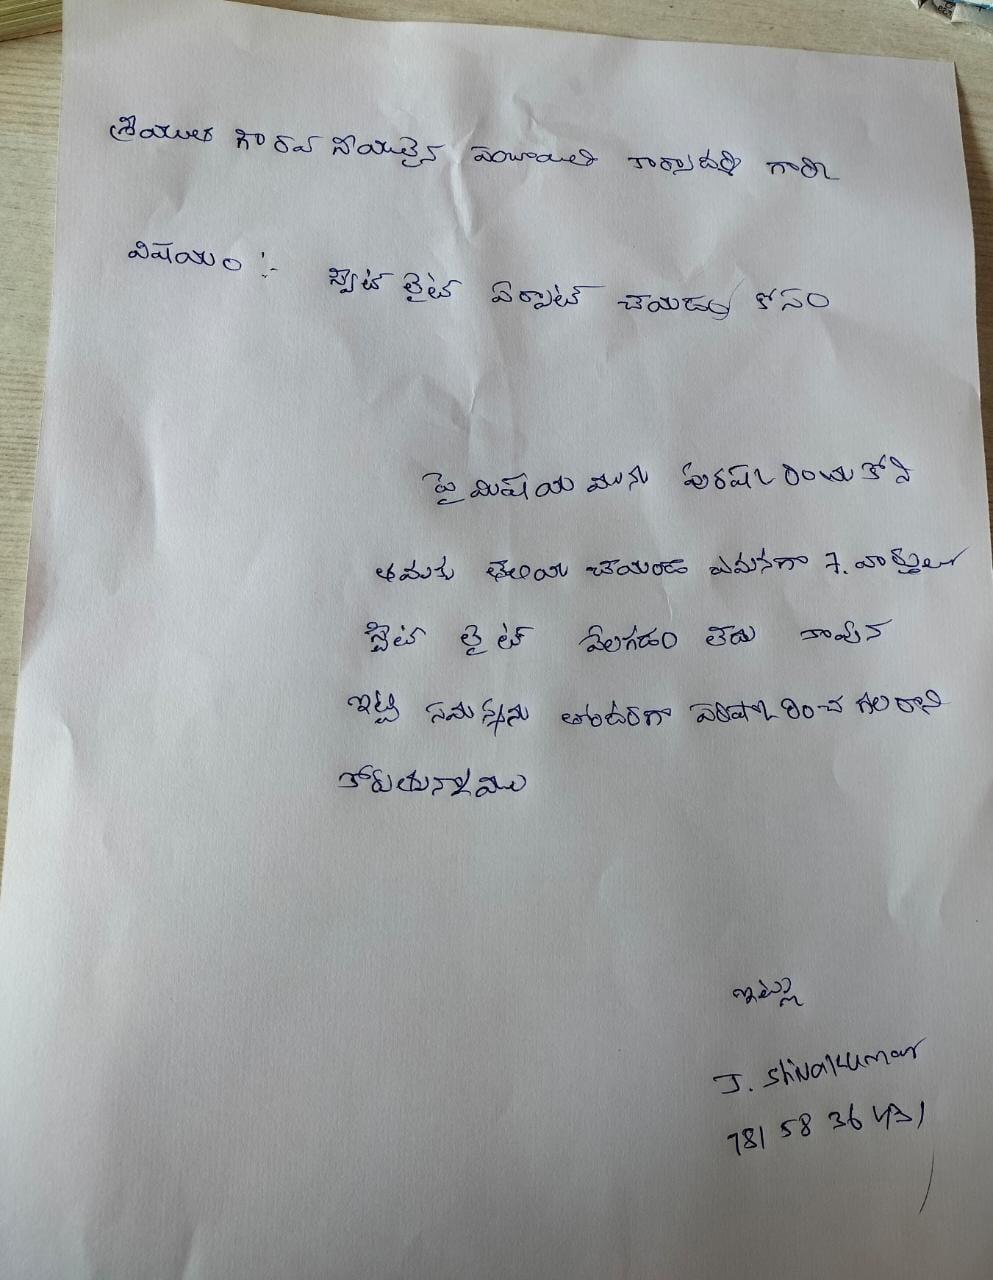 శ్రీయుత గౌరవ నీయులైన పంచాయితి కార్యదర్శి గారికి
విషయం :- స్ట్రీట్ లైట్ ఏర్పాట్ చేయడం కోసం
పై విషయ మును పురష్క రించు కోని
తమకు తేలియ చేయండం ఎమనగా 7. వార్డులో
స్ట్రీట్ లైట్ వేలగడం లేదు కావున
ఇట్టి సమస్యను తోందరగా పరిష్క రించ గలరాని
కోరుతున్నాము
ఇట్లు
J. Shivakumar
781 58 36 431